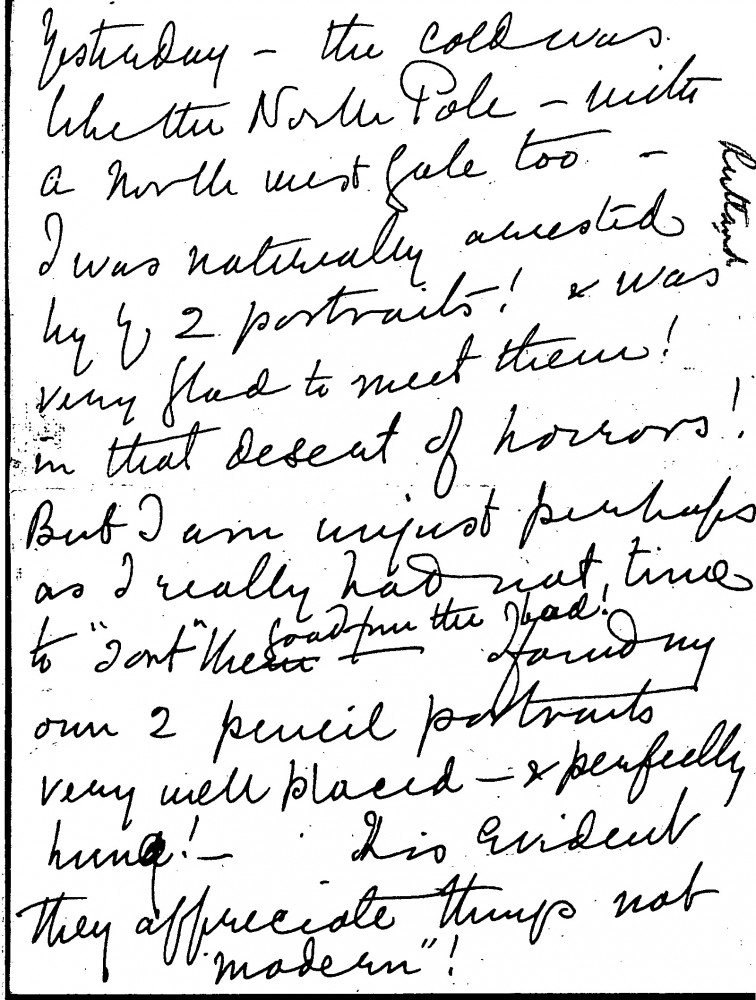 Yesterday – the cold was
like the North Pole – with
a North west gale too –
I was naturally arrested
by yr 2 portraits! & was
very glad to meet them!
in that desert of horrors!
But I am unjust perhaps
as I really had not time
to "sort" the good from the bad!
I found my
own 2 pencil portraits
very well placed – & perfectly
hung! – It is evident
they appreciate things not
"modern"!
Rutland